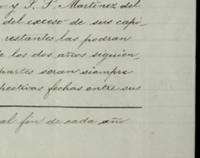 y S. S. Martinez del
del exceso de sus capi
restantes las podran
los dos años siguien
partes seran siempre
pectivas fechas entre sus
al fin de cada año